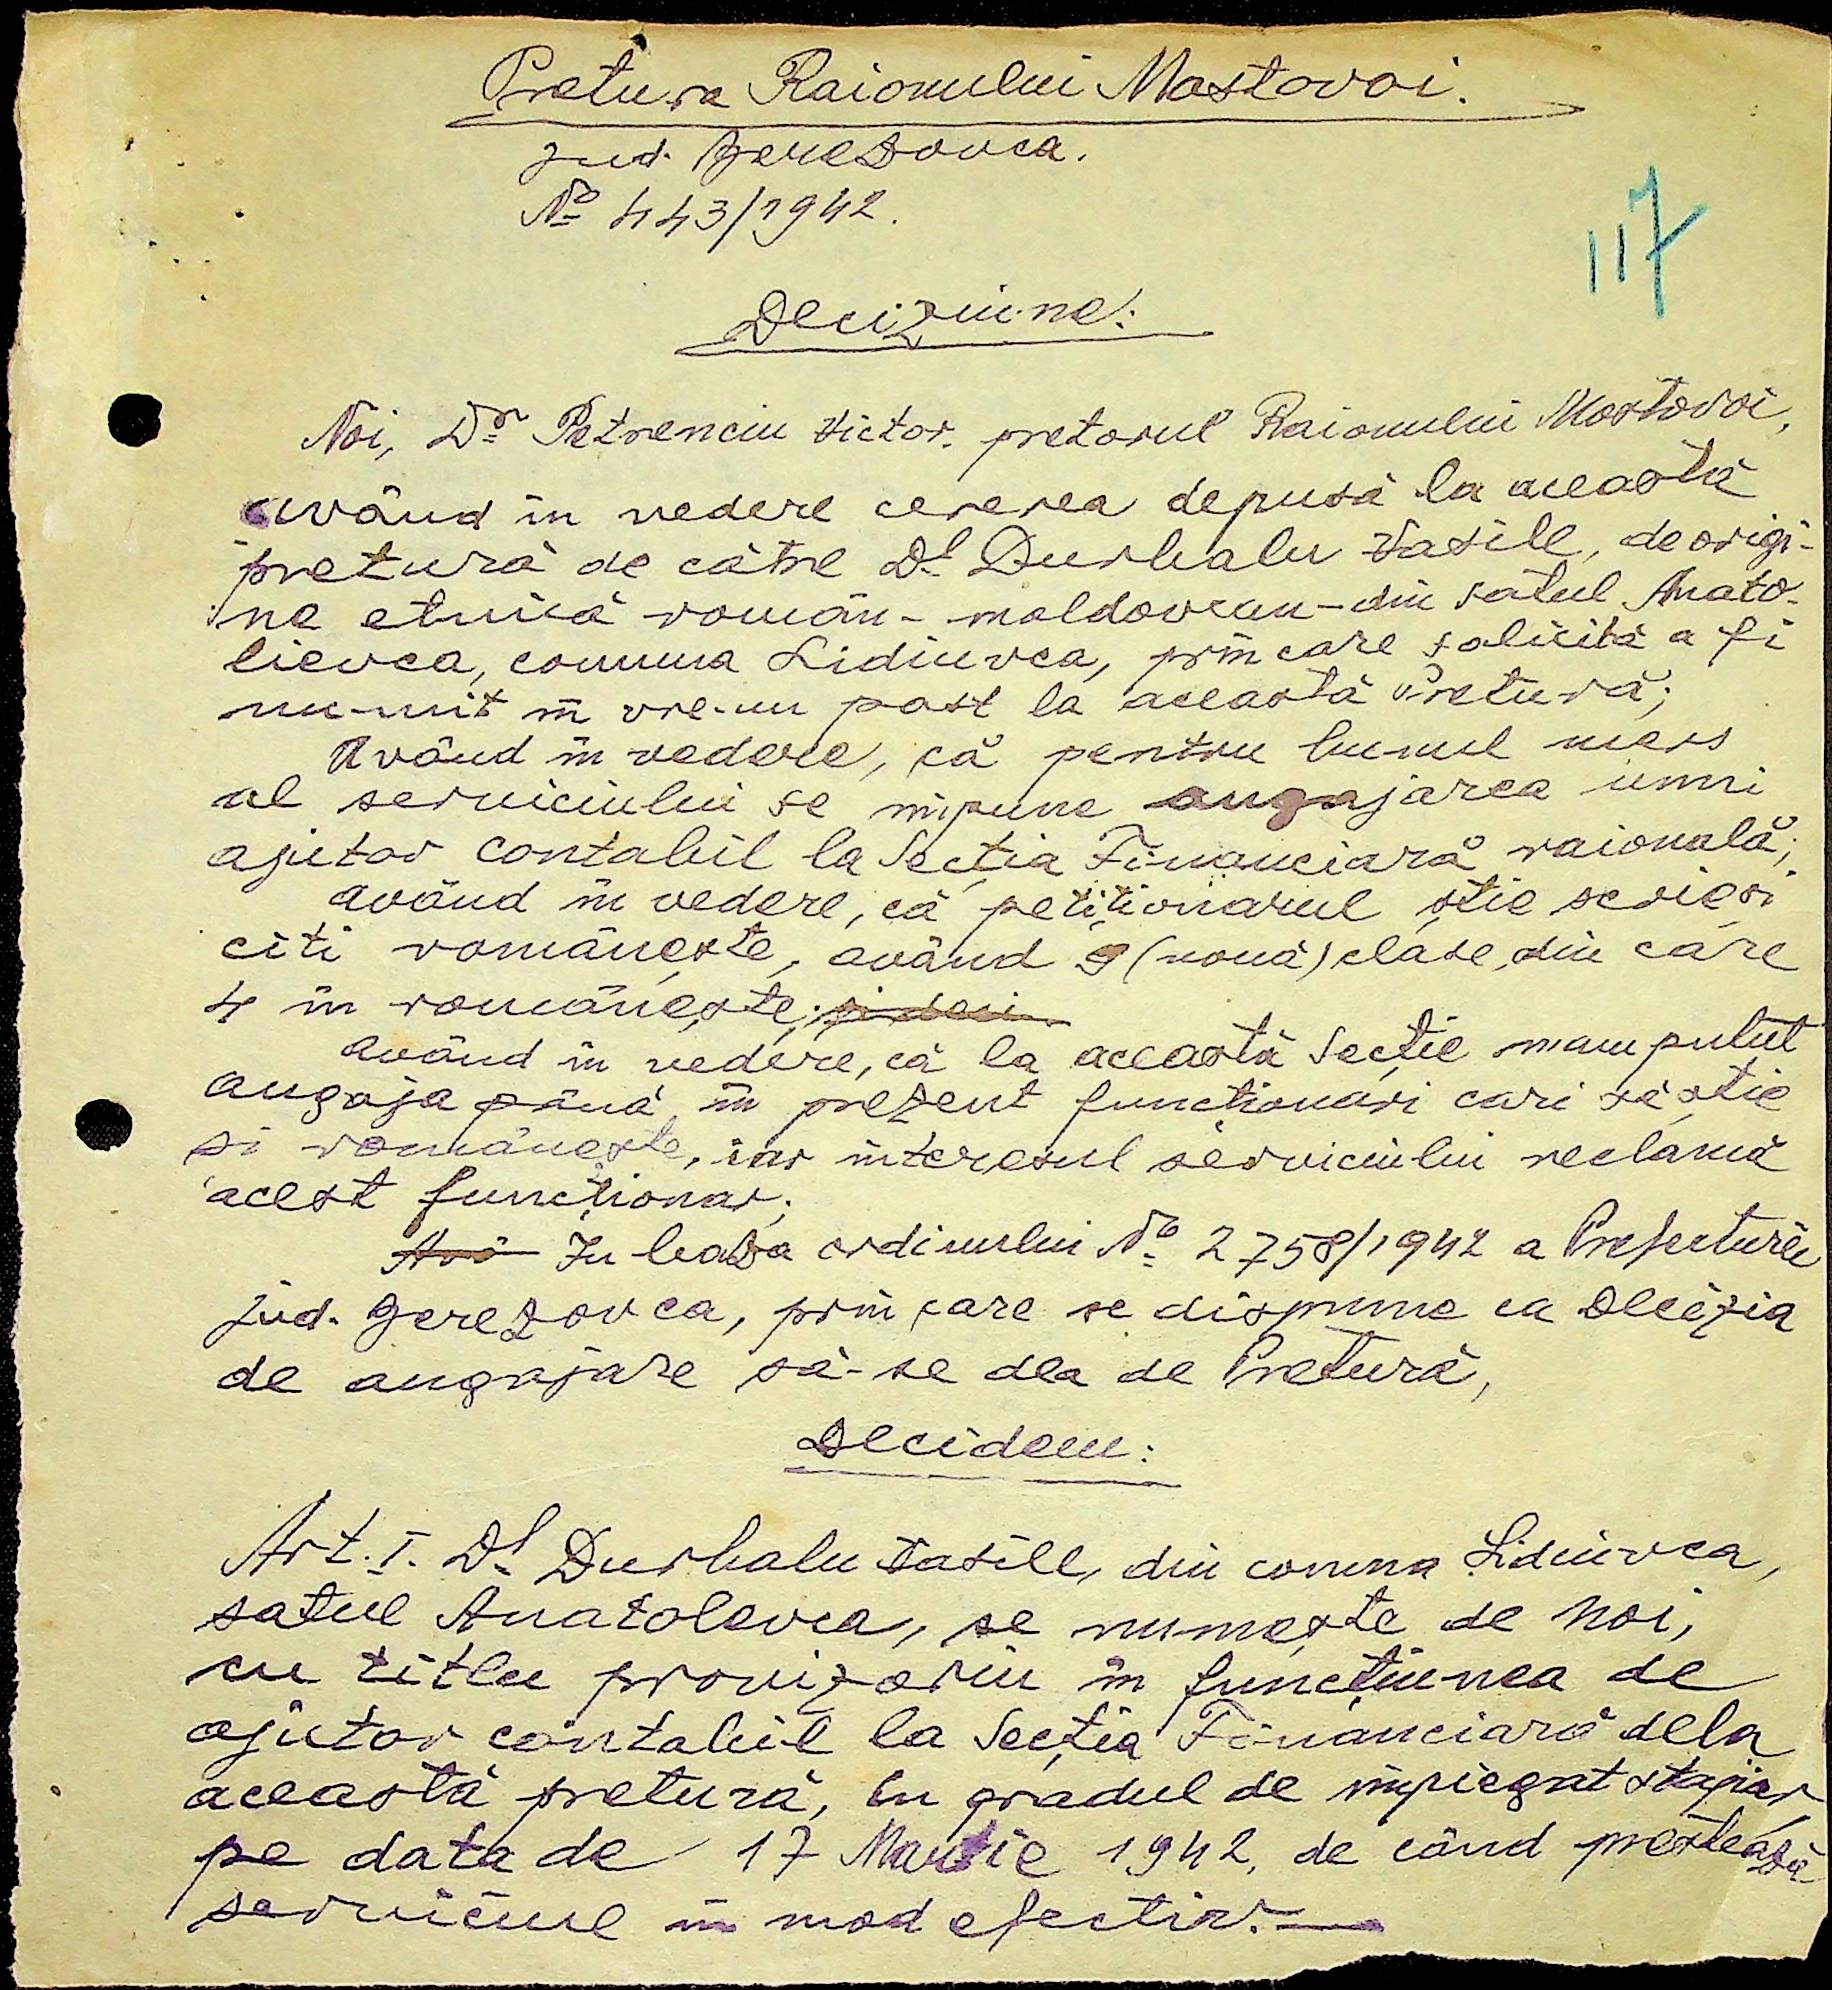 Pretura Raionului Mostovoi.
jud. Berezovca.
No 443/1942.
117
Deciziune:
Noi, Dr Petrenciu Victor. pretorul Raionului Mostovoi,
având în vedere cererea depusă la această
pretură de către Dl Durbalu Vasile, de origi-
ne etnică român - moldovean - din satul Anato-
lievca, comuna Lidiuvca, prin care solicită a fi
nu-mit în vre-un post la această Pretură;
Având în vedere, că pentru bunul mers
al serviciului se impune angajarea unui
ajutor contabil la Secția Financiară raională;
având în vedere, că petiționarul știe scrie și
citi românește, având 9 (nouă) clase, din care
4 în românește; și deci
având în vedere, că la această Secție n'am putut
angaja până în prezent funcționari cari să știe
și românește, iar interesul serviciului reclamă
acest funcționar;
Avâ In baza ordinului No 2758/1942 a Prefecturii
jud. Berezovca, prin care se dispune ca Decizia
de angajare să-se dea de Pretură,
Decidem:
Art. I. Dl Durbalu Vasile, din comuna Lidiuvca,
satul Anatolevca, se numește de noi,
cu titlu provizoriu în funcțiunea de
ajutor contabil la Secția Financiară dela
această pretură, cu gradul de impiegat stagiar
pe data de 17 Martie 1942, de când prestează
serviciul în mod efectiv.—